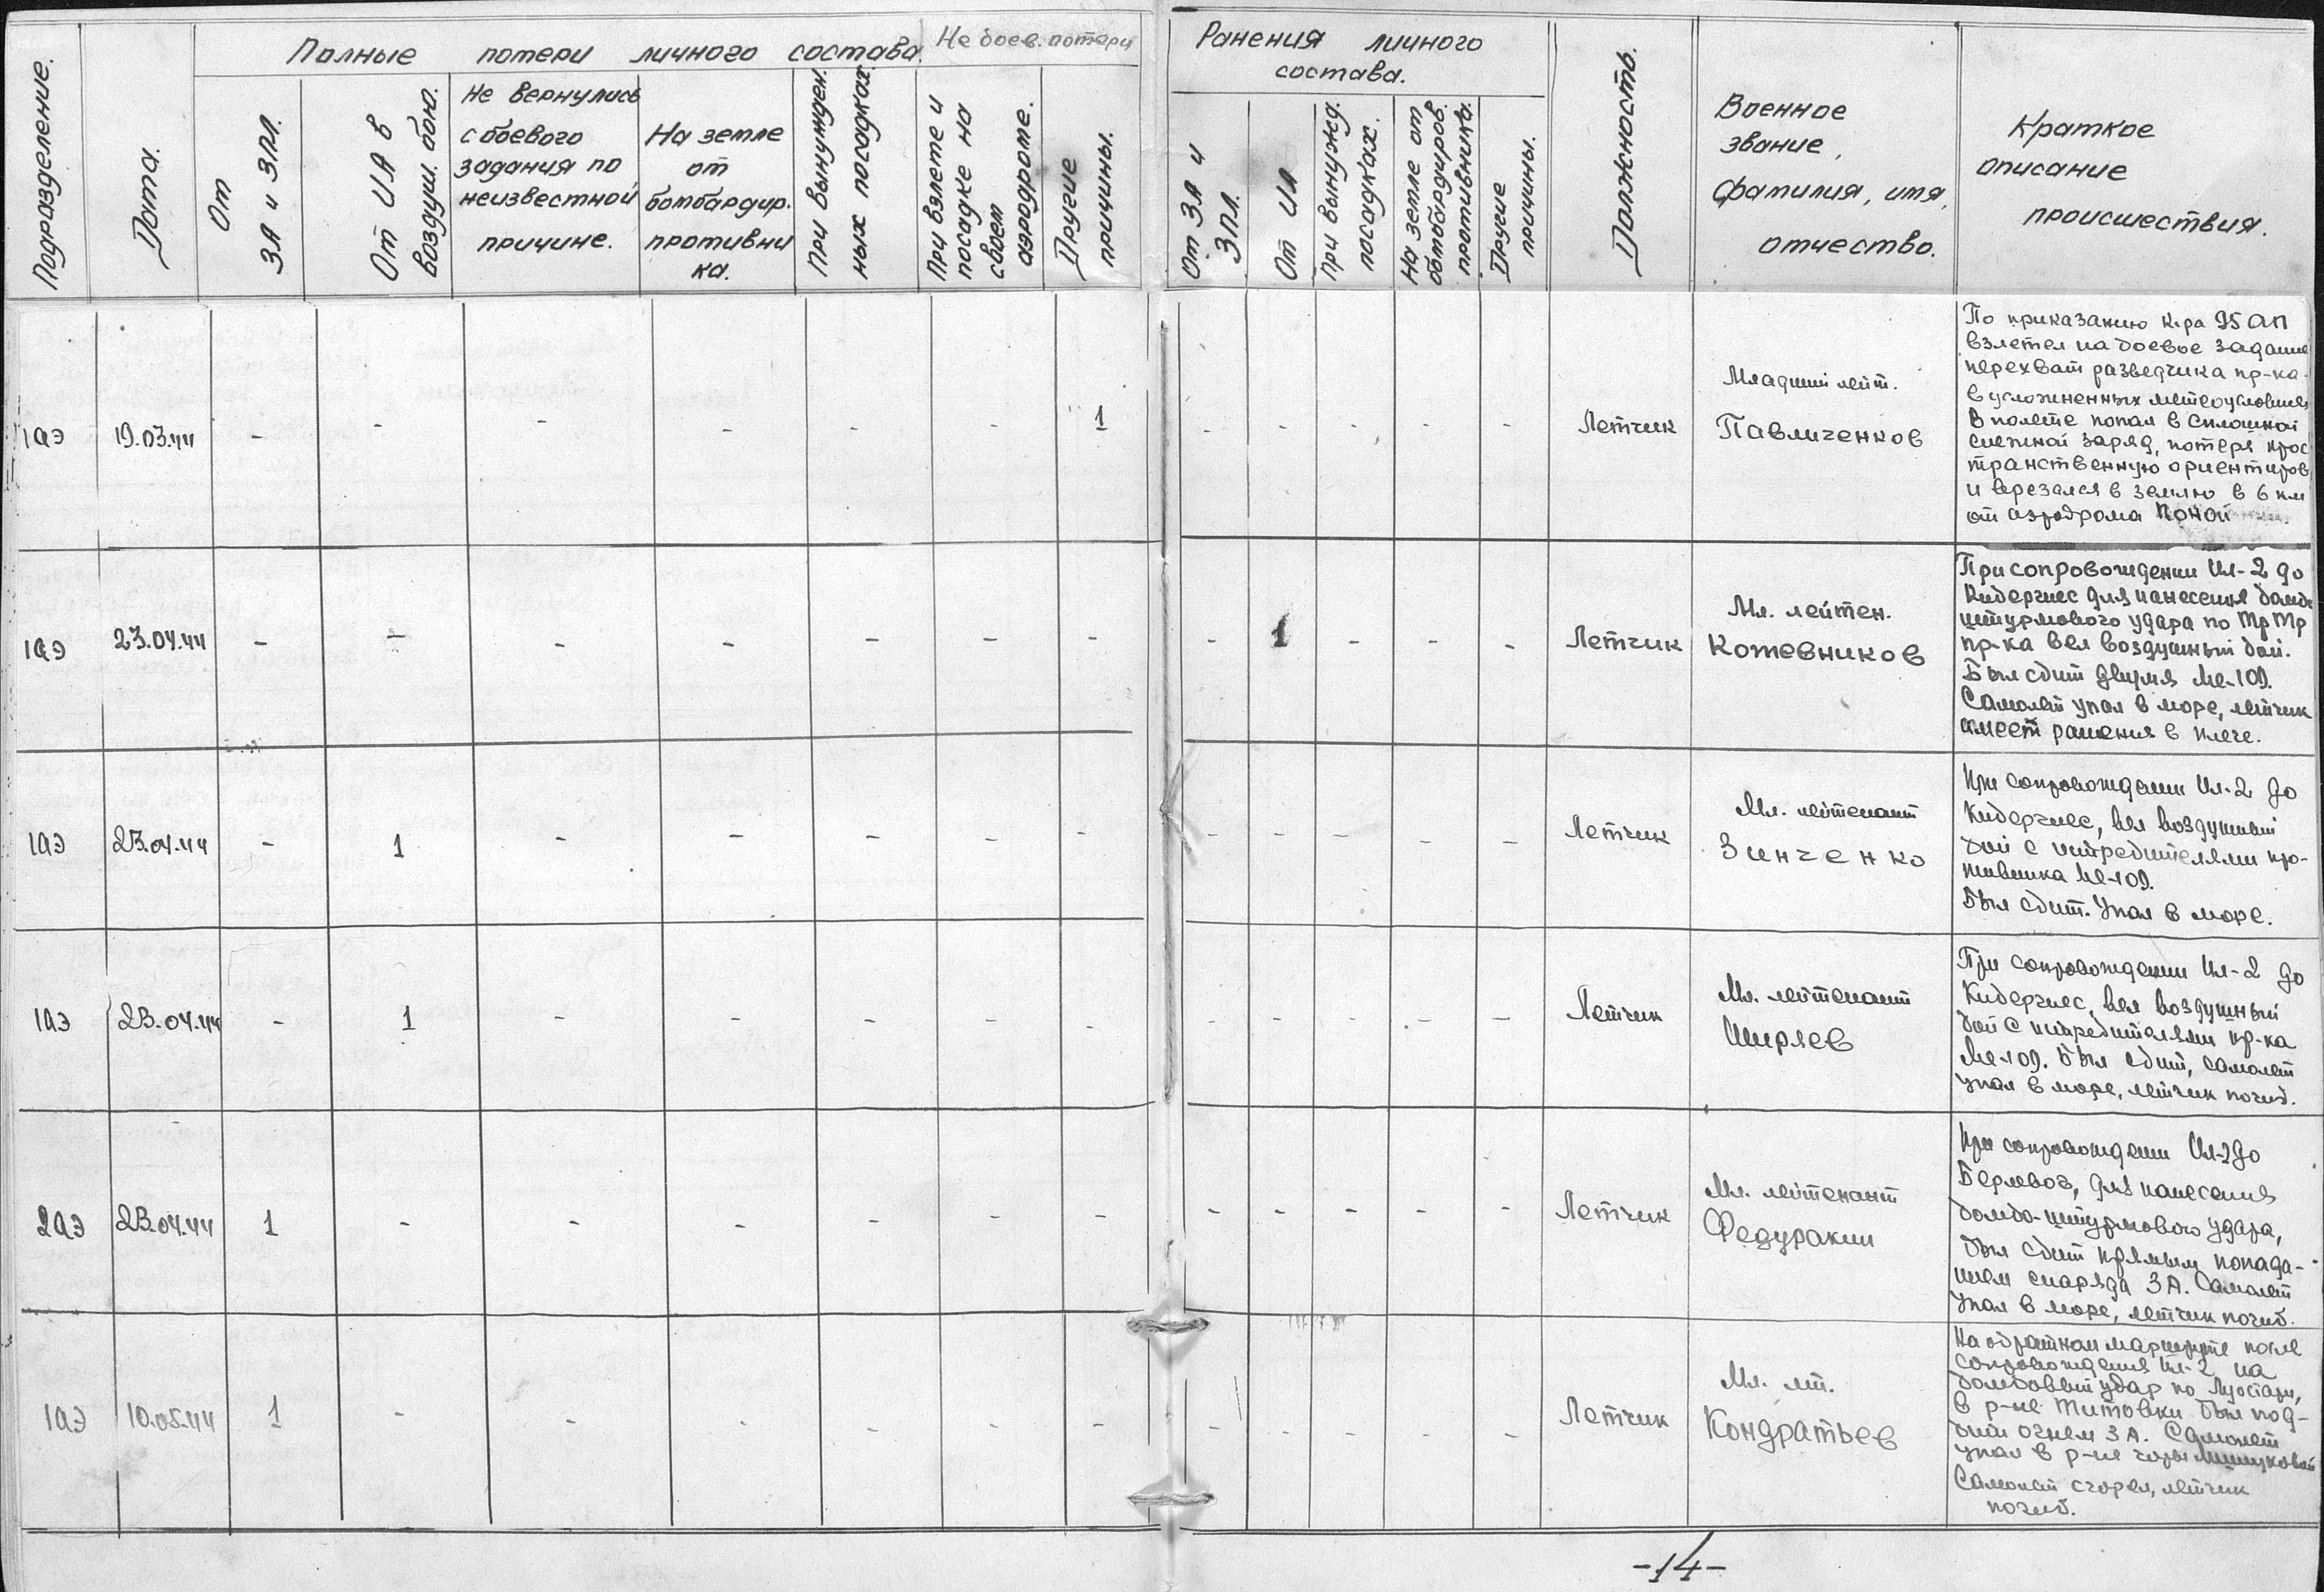 Подразделение.
Дата.
Полные потери личного состава.
Не боев. потери
От
ЗА и ЗПЛ.
От ИА в
воздуш. бою.
Не вернулись
с боевого
задания по
неизвестной
причине.
На земле
от
бомбардир.
противни
ка.
При вынужден.
ных посадках.
При взлете и
посадке на
своем
аэродроме.
Другие
причины.
Ранения личного
состава.
От ЗА и
ЗПЛ.
От ИА
При вынужд.
посадках.
На земле от
бомбардиров.
противника.
Другие
причины.
Должность.
Военное
звание,
фамилия, имя,
отчество.
Краткое
описание
происшествия.
1АЭ 19.03.44 - - - - - - 1 - - - - - Летчик
Младший лейт.
Павличенков
По приказанию к-ра 95 АП
взлетел на боевое задание
перехват разведчика пр-ка
в усложненных метеоусловиях
В полете попал в сплошной
снежной заряд, потеря прос
транственную ориентиров
и врезался в землю в 6 км
от аэродрома Поной
1АЭ 23.04.44 - - - - - - - - 1 - - - Летчик
Мл. лейтен.
Кожевников
При сопровождении Ил-2 до
Кибергнес для нанесения бомбо
штурмового удара по ТрТр
пр-ка вел воздушный бой.
Был сбит двумя Ме-109.
Самолет упал в море, летчик
имеет ранения в плече.
1АЭ 23.04.44 - 1 - - - - - - - - - - Летчик
Мл. лейтенант
Зинченко
При сопровождении Ил-2 до
Кибергнес, вел воздушный
бой с истребителями про-
тивника Ме-109.
Был сбит. Упал в море.
1АЭ 23.04.44 - 1 - - - - - - - - - - Летчик
Мл. лейтенант
Ширяев
При сопровождении Ил-2 до
Кибергнес, вел воздушный
бой с истребителями пр-ка
Ме-109. Был сбит, самолет
упал в море, летчик погиб.
2АЭ 23.04.44 1 - - - - - - - - - - - Летчик
Мл. лейтенант
Федуракин
При сопровождении Ил-2 до
Берлевог, для нанесения
бомбо-штурмового удара,
был сбит прямым попада-
нием снаряда ЗА. Самолет
упал в море, летчик погиб.
1АЭ 10.05.44 1 - - - - - - - - - - - Летчик
Мл. лт.
Кондратьев
На обратном маршруте после
сопровождения Ил-2 на
бомбовый удар по Луостари,
в р-не Титовки был под-
бит огнем ЗА. Самолет
упал в р-не горы
Самолет сгорел, летчик
погиб.
-14-